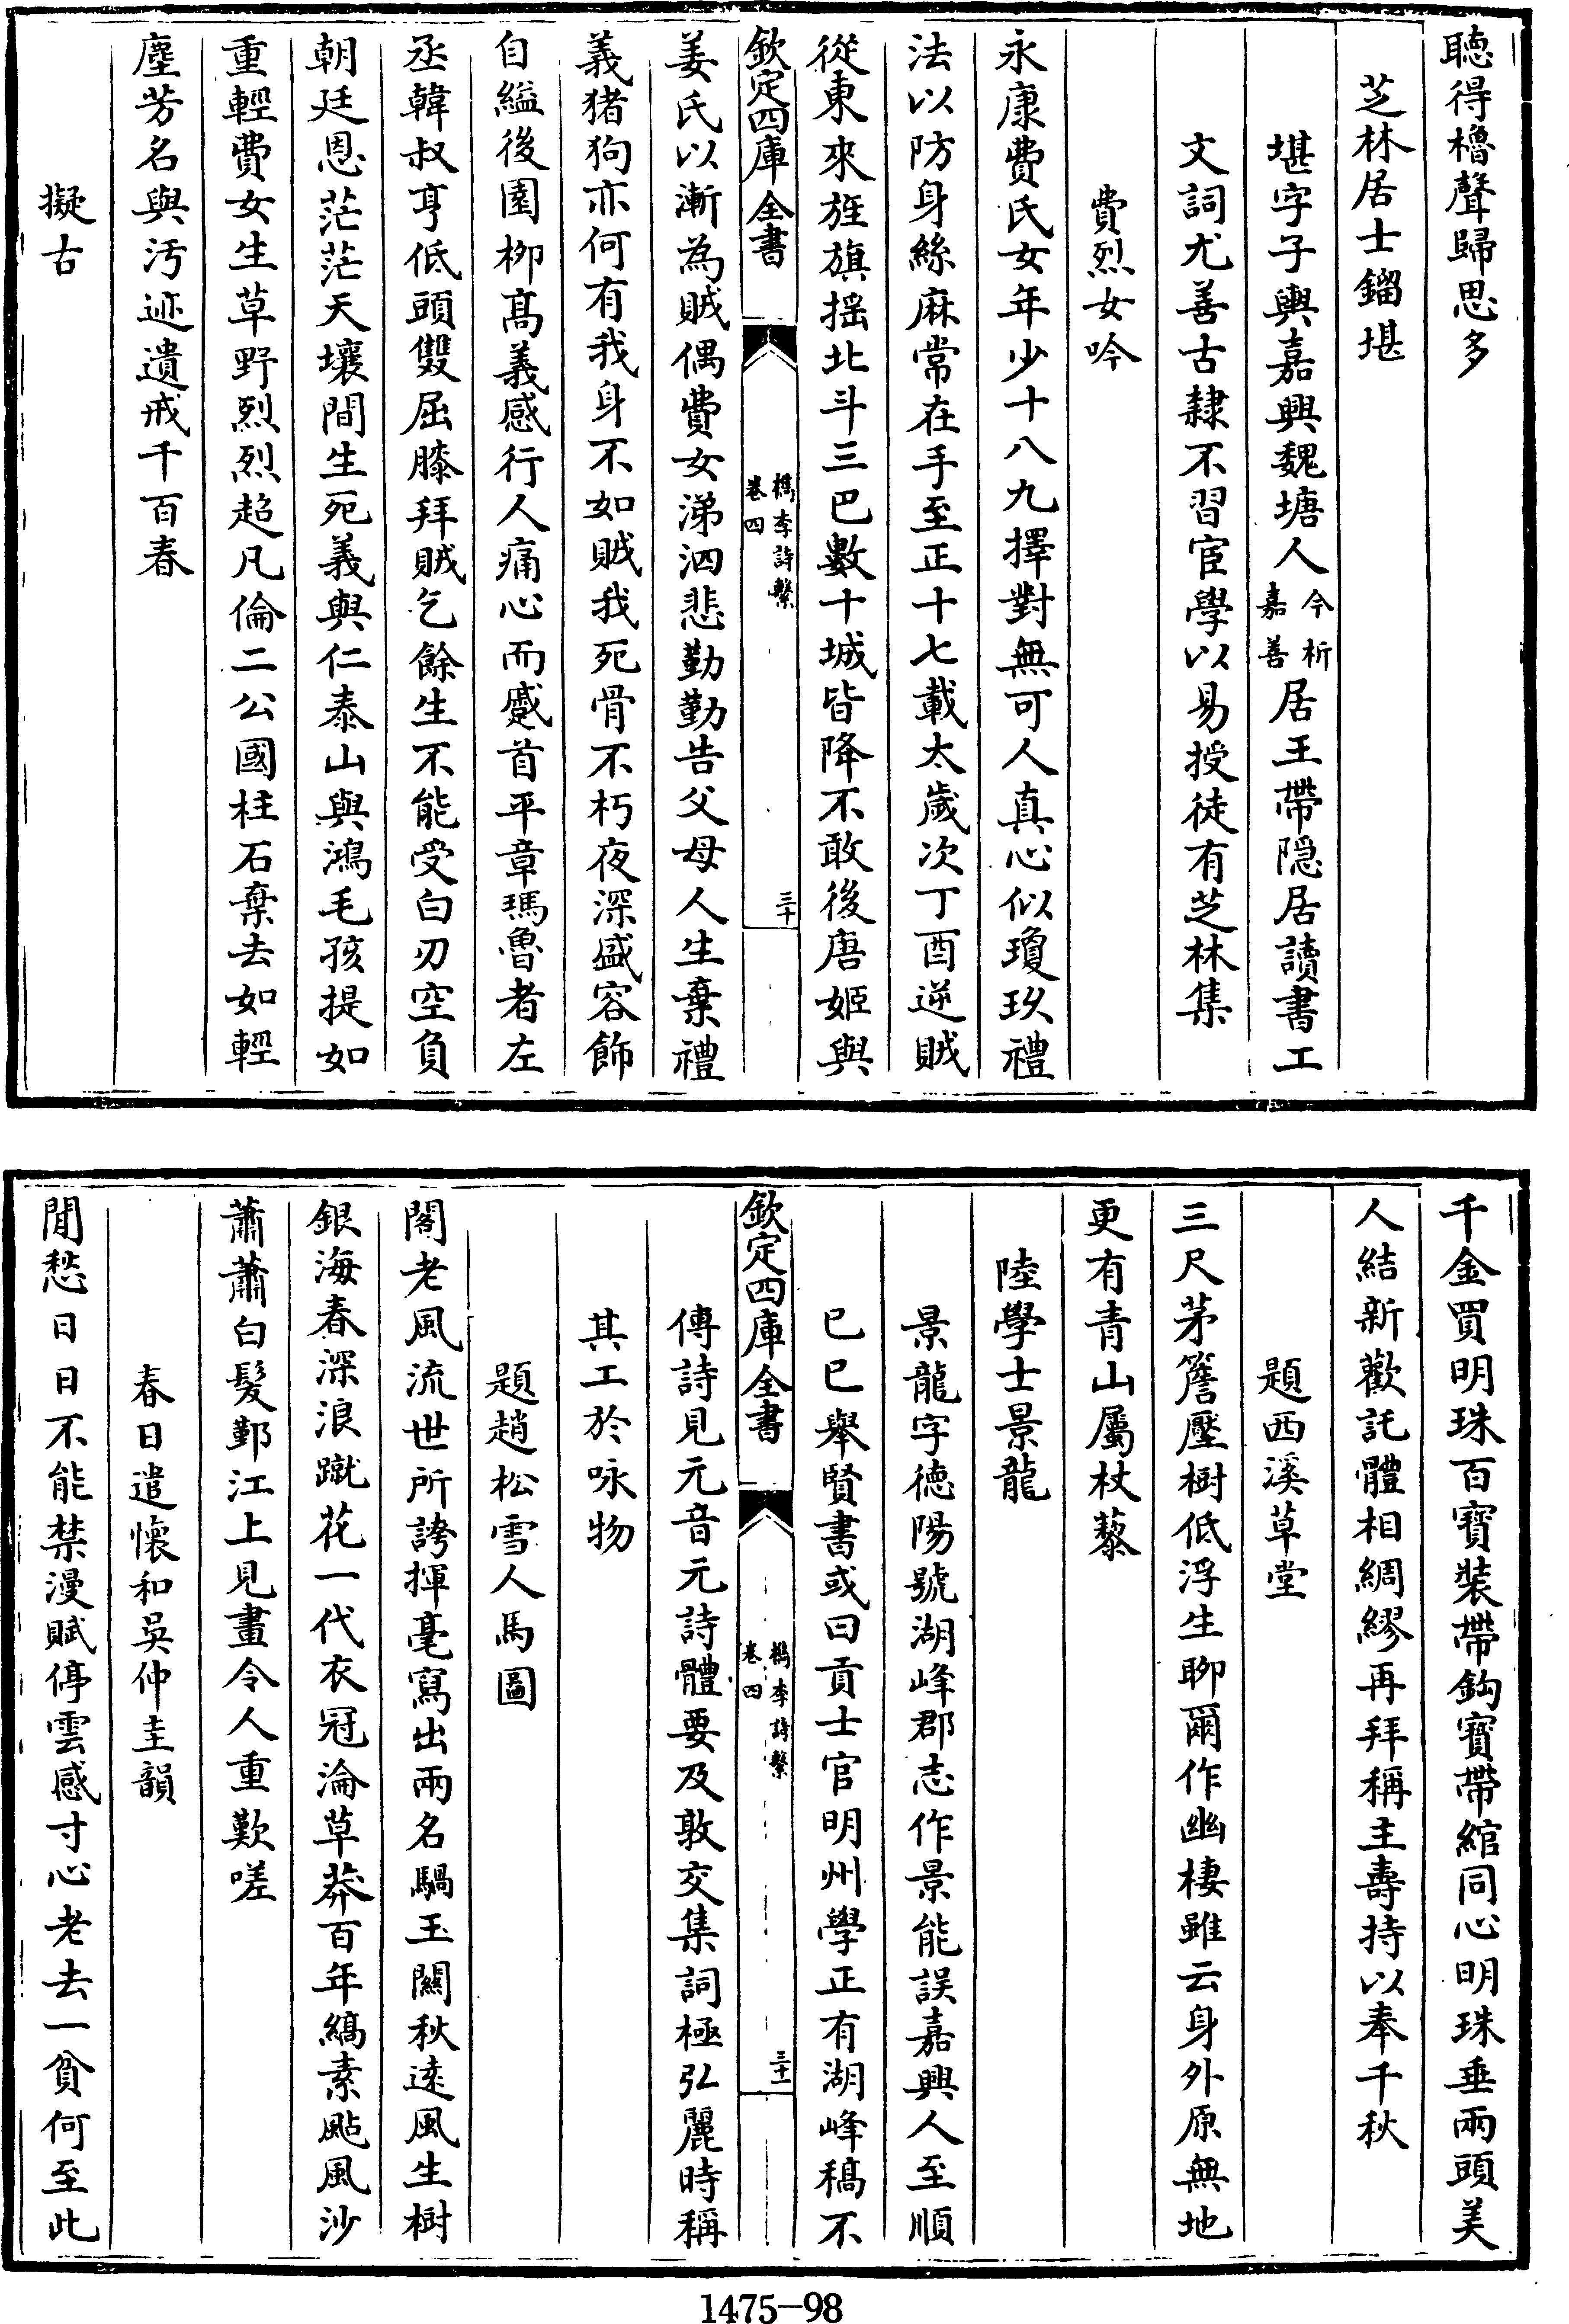 聽得櫓聲歸思多
芝林居士鎦堪
堪字子輿嘉興魏塘人今析嘉善居王帶隠居讀書工
文詞尤善古隸不習宦學以易授徒有芝林集
費烈女吟
永康費氏女年少十八九擇對無可人真心似瓊玖禮
法以防身絲麻常在手至正十七載太歲次丁酉逆賊
從東來旌旗揺北斗三巴數十城皆降不敢後唐姬與
欽定四庫全書
檇李詩繫
卷四
三十
姜氏以漸為賊偶費女涕泗悲勤勤告父母人生棄禮
義猪狗亦何有我身不如賊我死骨不朽夜深盛容飾
自縊後園栁髙義感行人痛心而蹙首平章瑪魯者左
丞韓叔亨低頭雙屈膝拜賊乞餘生不能受白刃空負
朝廷恩茫茫天壤間生死義與仁泰山與鴻毛孩提如
重輕費女生草野烈烈超凡倫二公國柱石棄去如輕
塵芳名與汚迹遺戒千百春
擬古
千金買明珠百寶裝帶鈎寶帶綰同心明珠垂兩頭美
人結新歡託體相綢繆再拜稱主壽持以奉千秋
題西溪草堂
三尺茅簷壓樹低浮生聊爾作幽棲雖云身外原無地
更有青山屬杖藜
陸學士景龍
景龍字德陽號湖峰郡志作景能誤嘉興人至順
已巳舉賢書或曰貢士官明州學正有湖峰稿不
欽定四庫全書
檇李詩繫
卷四
三十一
傳詩見元音元詩體要及敦交集詞極弘麗時稱
其工於咏物
題趙松雪人馬圖
閣老風流世所誇揮毫寫出兩名騧玉關秋逺風生樹
銀海春深浪蹴花一代衣冠淪草莽百年縞素颭風沙
蕭蕭白髮鄞江上見畫令人重歎嗟
春日遣懷和吳仲圭韻
閒愁日日不能禁漫賦停雲感寸心老去一貧何至此
1475-98